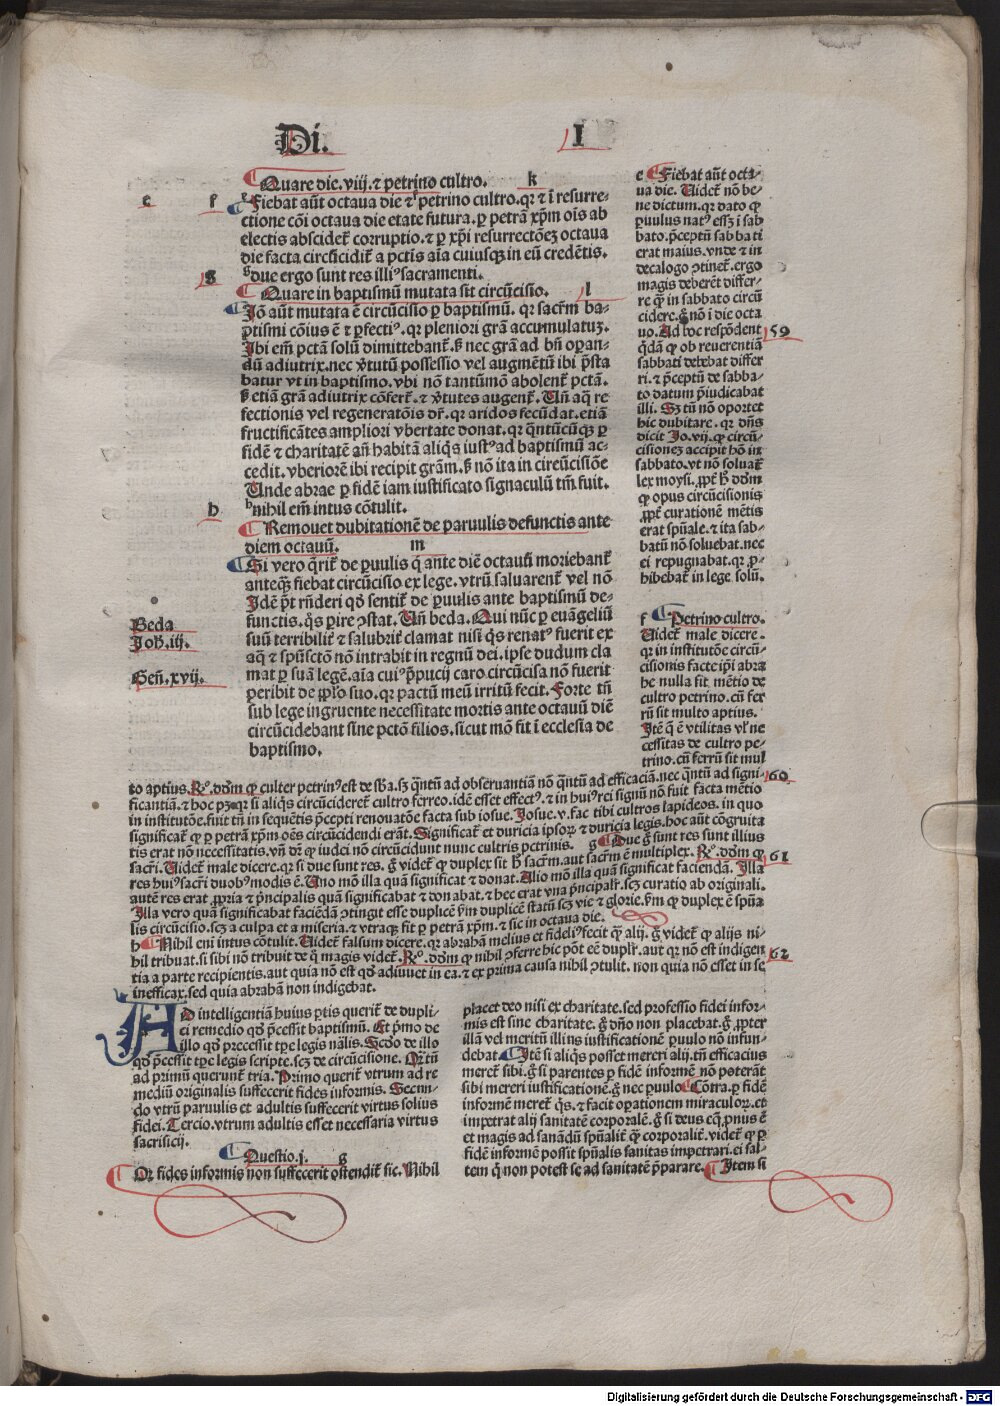 Di. I
Quare die. viij. ⁊ petrino cultro. k
e f Fiebat aūt octaua die ⁊ petrino cultro. qꝛ ⁊ ī resurre-
ctione cōi octaua die etate futura. ꝑ petrā xp̄m oīs ab
electis abscidet̄ corruptio. ⁊ ꝑ xp̄i resurrectōeꝫ octaua
die facta circūcidit̄ a pctīs aīa cuiusqꝫ in eū credētis.
g due ergo sunt res illiꝰ sacramenti.
Quare in baptismū mutata sit circūcisio. l
Iō aūt mutata ē circūcisio ꝑ baptismū. qꝛ sacr̄m ba-
ptismi cōius ē ⁊ ꝑfectiꝰ. qꝛ pleniori grā accumulatuꝫ.
Ibi em̄ pctā solū dimittebant̄. ß nec grā ad bn̄ oꝑan-
dū adiutrix. nec v̄tutū possessio vel augmētū ibi p̄sta
batur vt in baptismo. vbi nō tantūmō abolent̄ pctā.
ß etiā grā adiutrix cōfert̄. ⁊ v̄tutes augent̄. Un̄ aq̄ re
fectionis vel regeneratōis dr̄. qꝛ aridos fecūdat. etiā
fructificātes ampliori vbertate donat. qꝛ q̄ntūcūqꝫ ꝑ
fidē ⁊ charitatē an̄ habitā aliq̄s iustꝰ ad baptismū ac-
cedit. vberiorē ibi recipit grām. ß nō ita in circūcisiōe
Unde abrae ꝑ fidē iam iustificato signaculū tm̄ fuit.
h nihil em̄ intus cōtulit.
Remouet dubitationē de paruulis defunctis ante
diem octauū. m
Si vero q̄rit̄ de ꝑuulis q̄ ante diē octauū moriebant̄
anteqꝫ fiebat circūcisio ex lege. vtrū saluarent̄ vel nō
Idē p̄t rn̄deri qd̄ sentit̄ de ꝑuulis ante baptismū de-
functis. q̄s ꝑire ↄstat. Un̄ beda. Qui nūc ꝑ euāgeliū
suū terribilit̄ ⁊ salubrit̄ clamat nisi q̄s renatꝰ fuerit ex
aq̄ ⁊ sp̄ūsctō nō intrabit in regnū dei. ipse dudum cla
mat ꝑ suā legē. aīa cuiꝰ p̄pucij caro circūcisa nō fuerit
ꝑeribit de pplo suo. qꝛ pactū meū irritū fecit. Forte tn̄
sub lege ingruente necessitate mortis ante octauū diē
circūcidebant sine pctō filios. sicut mō fit ī ecclesia de
baptismo.
Beda
Joh̄. iij.
Gen̄. xvij.
e Fiebat aūt octa-
ua die. Uidet̄ nō be-
ne dictum. qꝛ dato ꝙ
ꝑuulus natꝰ esset ī sab
bato. p̄ceptū sabbati
erat maius. vnde ⁊ in
decalogo ↄtinet̄. ergo
magis deberēt differ-
re q̄ in sabbato circū
cidere. g̊ nō ī die octa
uo. Ad hoc respōdent 59
q̄dā ꝙ ob reuerentiā
sabbati debebat differ
ri. ⁊ p̄ceptū de sabba-
to datum p̄iudicabat
illi. Sꝫ tn̄ nō oportet
hic dubitare. qꝛ dn̄s
dicit Jo. vij. ꝙ circū-
cisionez accipit hō in
sabbato. vt nō soluat̄
lex moysi. ꝓpt̄ h̄ dd̄m
ꝙ opus circūcisionis
ꝓpt̄ curationē mētis
erat spūale. ⁊ ita sab-
batū nō soluebat. nec
ei repugnabat. qꝛ ꝓ-
hibebat̄ in lege solū.
f Petrino cultro.
Uidet̄ male dicere.
qꝛ in institutōe circū-
cisionis facte ip̄i abra
he nulla fit mētio de
cultro petrino. cū fer
rū sit multo aptius.
Itē q̄ ē vtilitas vl̓ ne
cessitas de cultro pe-
trino. cū ferrū sit mul
to aptius. Rꝰ. dd̄m ꝙ culter petrinꝰ est de sb̄a. sꝫ q̄ntū ad obseruantiā nō q̄ntū ad efficaciā. nec q̄ntū ad signi- 60
ficantiā. ⁊ hoc pꝫ. qꝛ si aliq̄s circūcideret̄ cultro ferreo. idē esset effectꝰ. ⁊ in huiꝰ rei signū nō fuit facta mētio
in institutōe. fuit tn̄ in sequētis p̄cepti renouatōe facta sub iosue. Josue. v. fac tibi cultros lapideos. in quo
significat̄ ꝙ ꝑ petrā xp̄m oēs circūcidendi erāt. Significat̄ et duricia ipsoꝝ ⁊ duricia legis. hoc aūt cōgruita
tis erat nō necessitatis. vn̄ dr̄ ꝙ iudei nō circūcidunt nunc cultris petrinis. g Due g̊ sunt res sunt illius
sacr̄i. Uidet̄ male dicere. qꝛ si due sunt res. g̊ videt̄ ꝙ duplex sit h̄ sacr̄m. aut sacr̄m ē multiplex. Rꝰ. dd̄m ꝙ 61
res huiꝰ sacr̄i duobꝰ modis ē. Uno mō illa quā significat ⁊ donat. Alio mō illa quā significat faciendā. Illa
autē res erat ꝓpria ⁊ p̄ncipalis quā significabat ⁊ donabat. ⁊ hec erat vna p̄ncipalr̄. scꝫ curatio ab originali.
Illa vero quā significabat faciēdā ↄtingit esse duplicē ẜm duplicē statū scꝫ vie ⁊ glorie. ẜm ꝙ duplex ē spūa
lis circūcisio. scꝫ a culpa et a miseria. ⁊ vtraqꝫ fit ꝑ petrā xp̄m. ⁊ sic in octaua die.
h Nihil eni intus cōtulit. Uidet̄ falsum dicere. qꝛ abrahā melius et fideliꝰ fecit q̄ alij. g̊ videt̄ ꝙ alijs ni-
hil tribuat. si sibi nō tribuit de q̄ magis videt̄. Rꝰ. dd̄m ꝙ nihil ↄferre hic pōt eē duplr̄. aut qꝛ nō est indigen 62
tia a parte recipientis. aut quia nō est qd̄ adiuuet in ea. ⁊ ex prima causa nihil ↄtulit. non quia nō esset in se
inefficax. sed quia abrahā non indigebat.
AD intelligentiā huius ꝑtis querit̄ de dupli-
ci remedio qd̄ p̄cessit baptismū. Et p̄mo de
illo qd̄ precessit tꝑe legis nālis. Scdo de illo
qd̄ p̄cessit tꝑe legis scripte. scꝫ de circūcisione. Qꝛ tn̄
ad primū querunt̄ tria. Primo querit̄ vtrum ad re
mediū originalis suffecerit fides informis. Secun-
do vtrū paruulis et adultis suffecerit virtus solius
fidei. Tercio. vtrum adultis esset necessaria virtus
sacrificij.
Questio. j. g
Qꝛ fides informis non suffecerit ostendit̄ sic. Nihil
placet deo nisi ex charitate. sed professio fidei infor-
mis est sine charitate. g̊ dn̄o non placebat. g̊ ꝓpter
illā vel meritū illius iustificationē ꝑuulo nō infun-
debat. Itē si aliq̄s posset mereri alij. tn̄ efficacius
meret̄ sibi. g̊ si parentes ꝑ fidē informē nō poterāt
sibi mereri iustificationē. g̊ nec ꝑuulo Cōtra. ꝑ fidē
informē meret̄ q̄s. ⁊ facit oꝑationem miraculoꝝ. et
impetrat alij sanitatē corporalē. g̊ si deus eq̄ ꝓnus ē
et magis ad sanādū spūalit̄ q̄ corporalit̄. videt̄ ꝙ ꝑ
fidē informē possit spūalis sanitas impetrari. ei sal-
tem q̄ non potest se ad sanitatē p̄parare. Item si
Digitalisierung gefördert durch die Deutsche Forschungsgemeinschaft - DFG